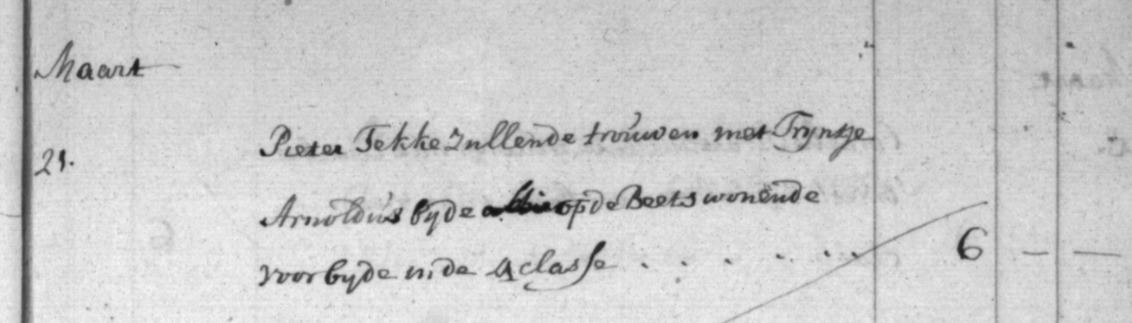 Maart
21. Pieter Tekke zullende trouwen met Tryntje
Arnoldus byde op de Beets wonende
voor byde in de 4 classe . . . . . . 6 — —